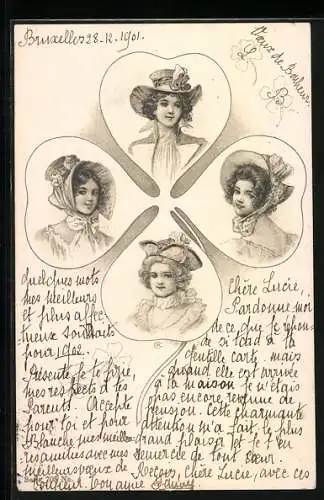 Bruxelles 28-12-1901.
Vœux de Bonheur.
L
B
Quelques mots
mes meilleurs
et plus affec
tueux souhaits
pour 1902.
Présente, je te prie,
mes respects à tes
Parents. Accepte
pour toi et pour
Blanche, mes meilleurs
avec mes
meilleurs vœux de
bonne année
Chère Lucie,
Pardonne moi
de ce que je répon-
de si tard à ta
gentille carte, mais
quand elle est arrivée
à la maison je n'étais
pas encore revenue de
pension. Cette charmante
attention m'a fait le plus
grand plaisir et je t'en
remercie de tout cœur.
Reçois, Chère Lucie, avec ces